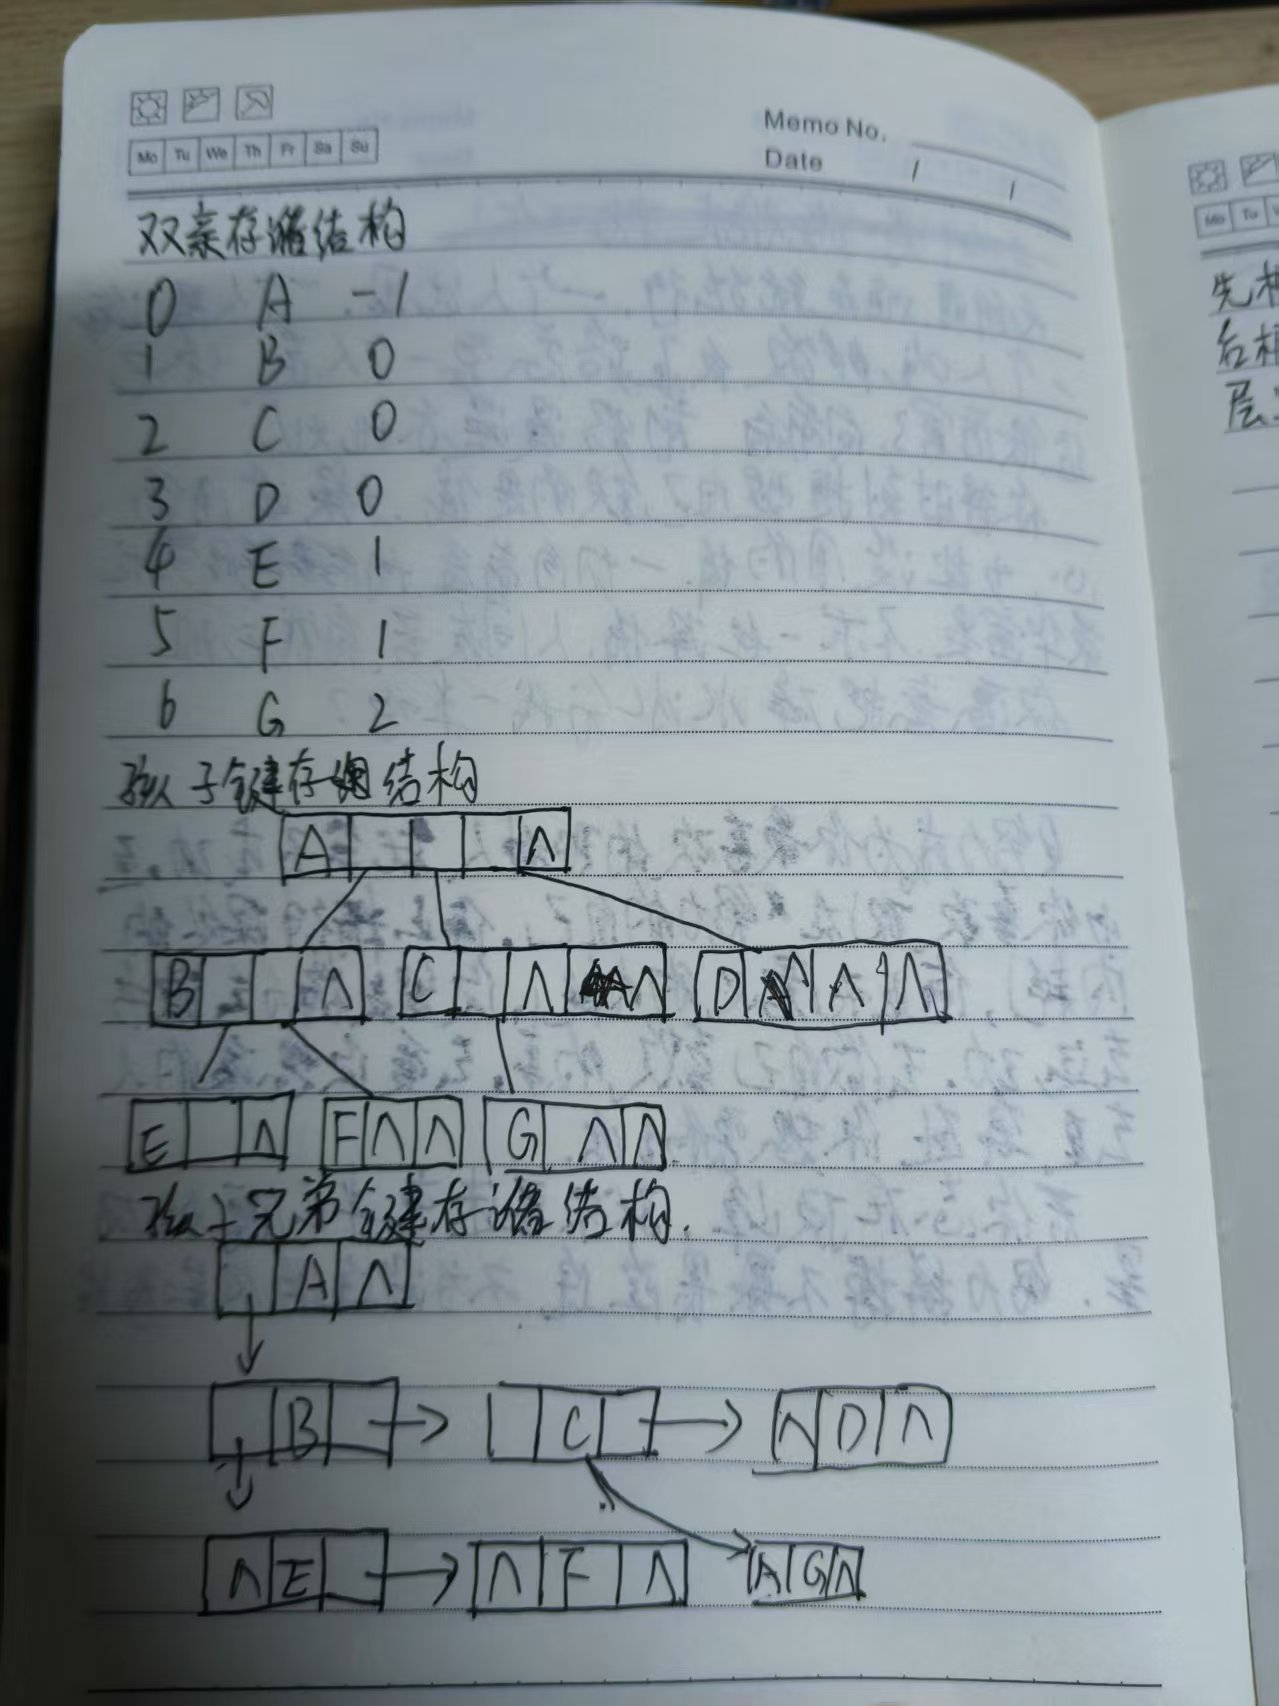 Mo Tu We Th Fr Sa Su
Memo No.
Date / /
双亲存储结构
0 A -1
1 B 0
2 C 0
3 D 0
4 E 1
5 F 1
6 G 2
孩子链存储结构
A ∧
B ∧ C ∧ ∧ D ∧ ∧ ∧
E ∧ F ∧ ∧ G ∧ ∧
孩子兄弟链存储结构.
A ∧
B C ∧ D ∧
∧ E ∧ F ∧ ∧ G ∧
Mo Tu
先
后
层